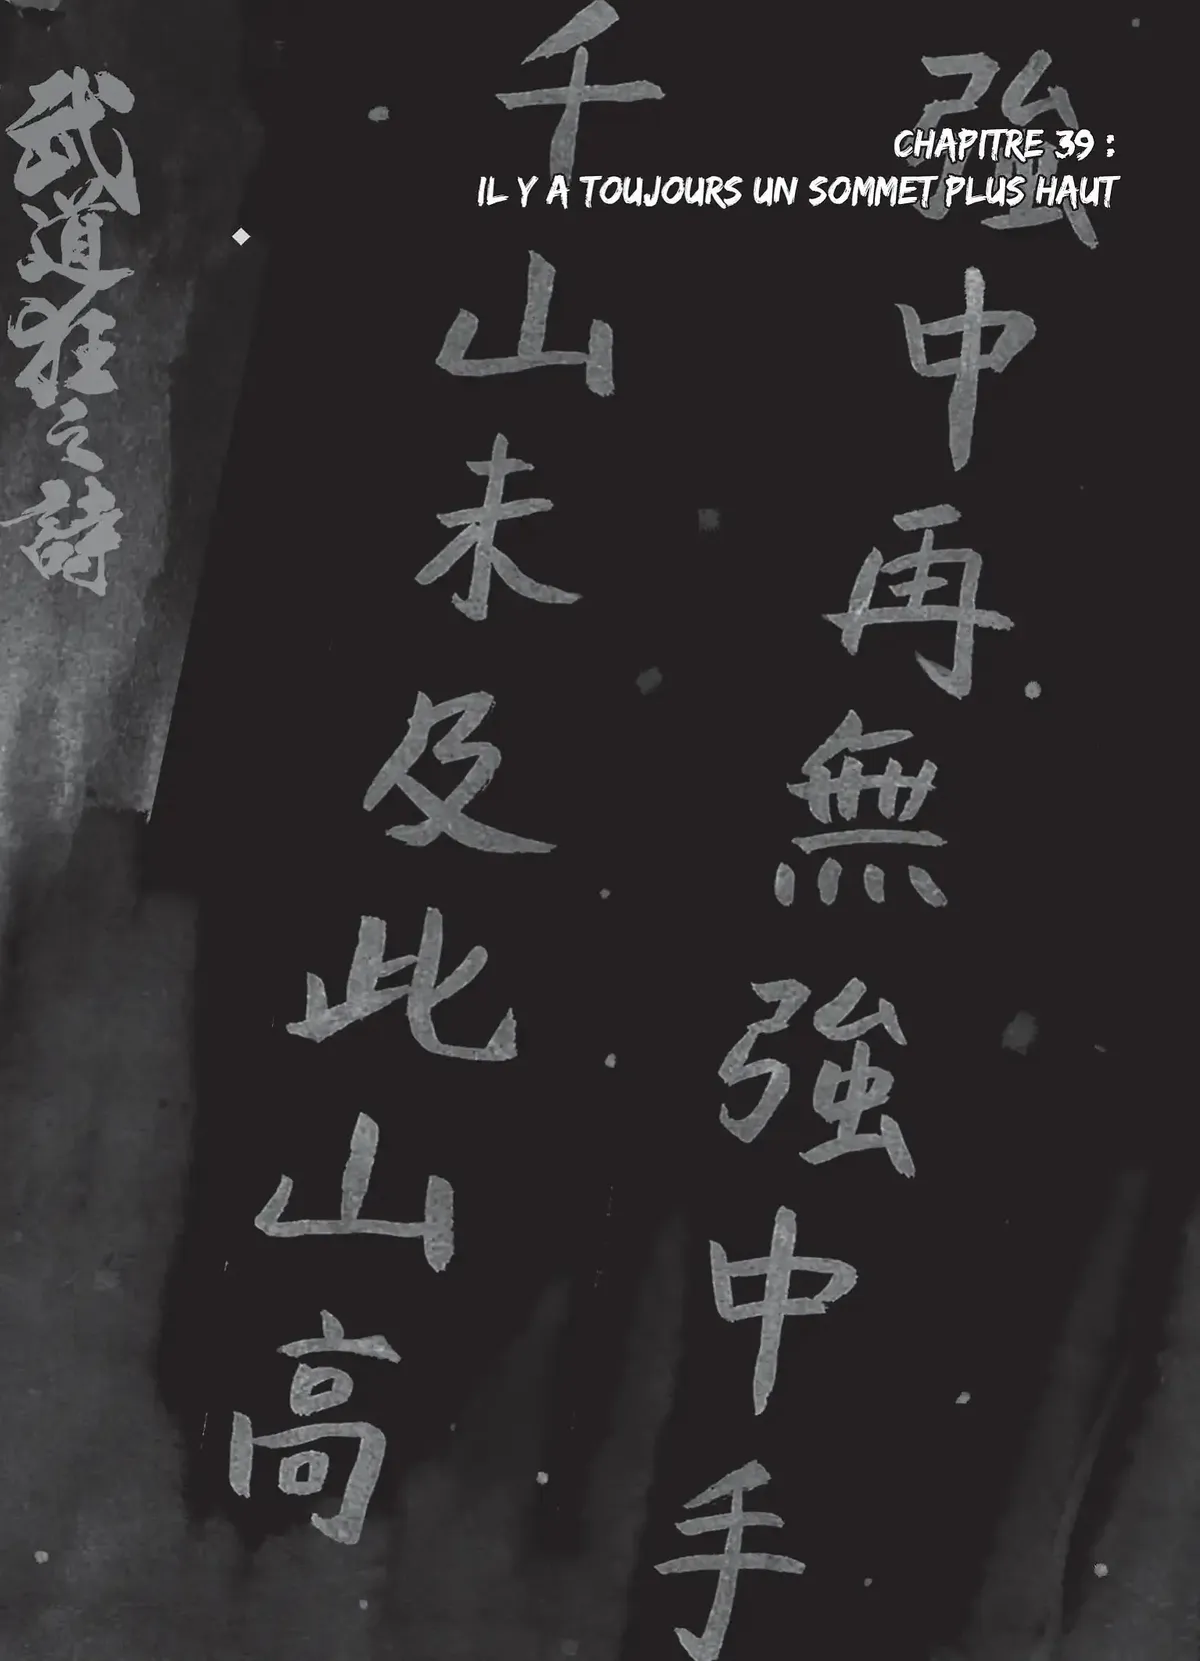 CHAPITRE 39 :
IL Y A TOUJOURS UN SOMMET PLUS HAUT
強中再無強中手
千山未及此山高
武道狂之詩